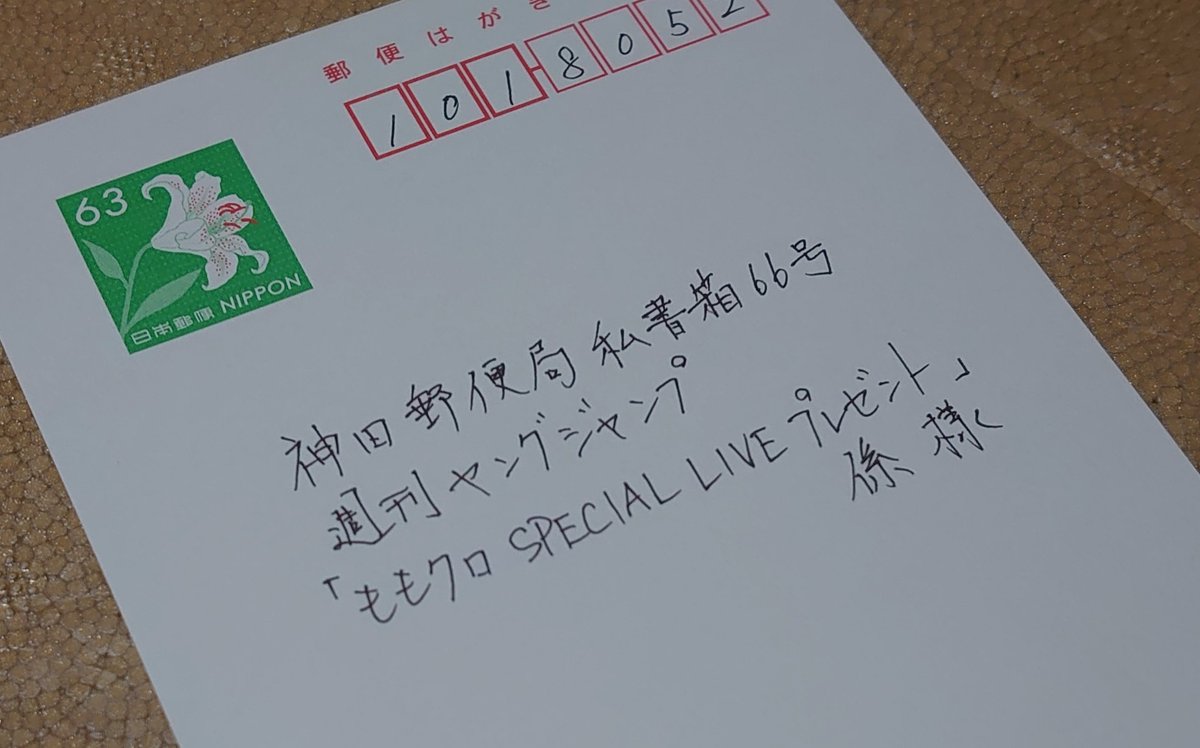 郵便はがき
101-8052
63
NIPPON
日本郵便
神田郵便局 私書箱66号
週刊ヤングジャンプ
「ももクロ SPECIAL LIVE プレゼント」
係 様